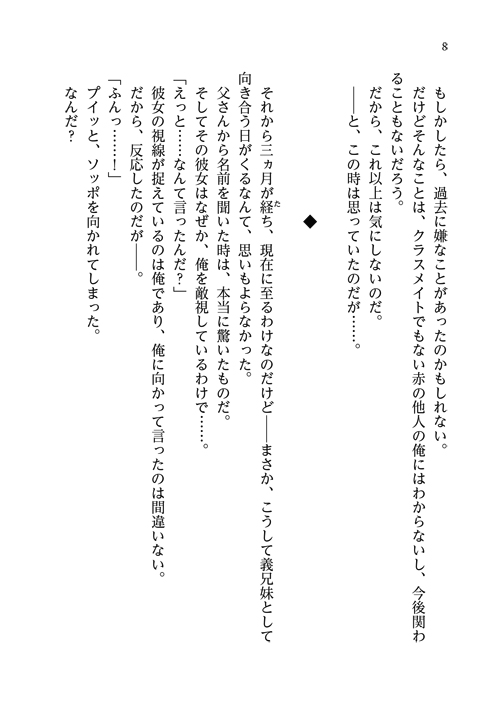 8
もしかしたら、過去に嫌なことがあったのかもしれない。
だけどそんなことは、クラスメイトでもない赤の他人の俺にはわからないし、今後関わ
ることもないだろう。
だから、これ以上は気にしないのだ。
――と、この時は思っていたのだが……。
◆
それから三ヵ月が経た ち、現在に至るわけなのだけど――まさか、こうして義兄妹として
向き合う日がくるなんて、思いもよらなかった。
父さんから名前を聞いた時は、本当に驚いたものだ。
そしてその彼女はなぜか、俺を敵視しているわけで……。
「えっと……なんて言ったんだ？」
彼女の視線が捉えているのは俺であり、俺に向かって言ったのは間違いない。
だから、反応したのだが――。
「ふんっ……！」
プイッと、ソッポを向かれてしまった。
なんだ？